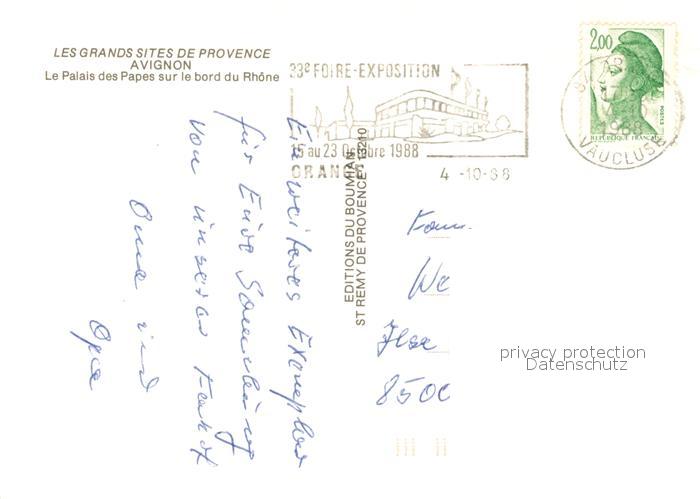 LES GRANDS SITES DE PROVENCE
AVIGNON
Le Palais des Papes sur le bord du Rhône
33e FOIRE-EXPOSITION
15 au 23 Octobre 1988
ORANGE
4 -10-88
2,00
POSTES
REPUBLIQUE FRANCAISE
VAUCLUSE
EDITIONS DU BOUMIAN
ST REMY DE PROVENCE 13210
Ein weiteres Exemplar
für Eure Sammlung
von unserer Fahrt
Oma und
Opa
Fam.
We
850
privacy protection
Datenschutz